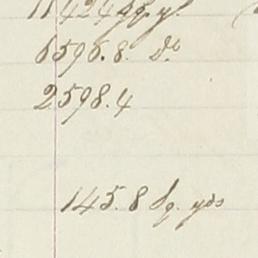 11424 sq. y.
6596.8. do
2598.4
145.8 Sq. yds